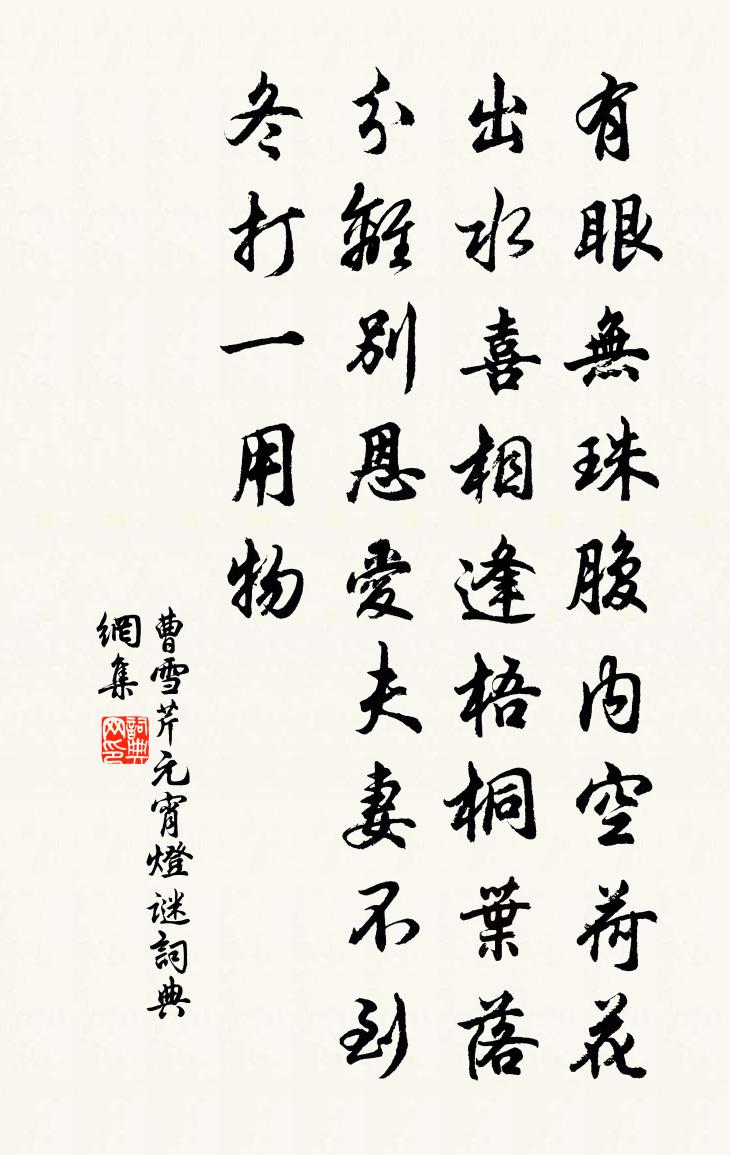 有眼無珠腹内空荷花
出水喜相逢梧桐葉落
分離別恩愛夫妻不到
冬打一用物
曹雪芹元宵燈谜詞典
網集
詞典
网印